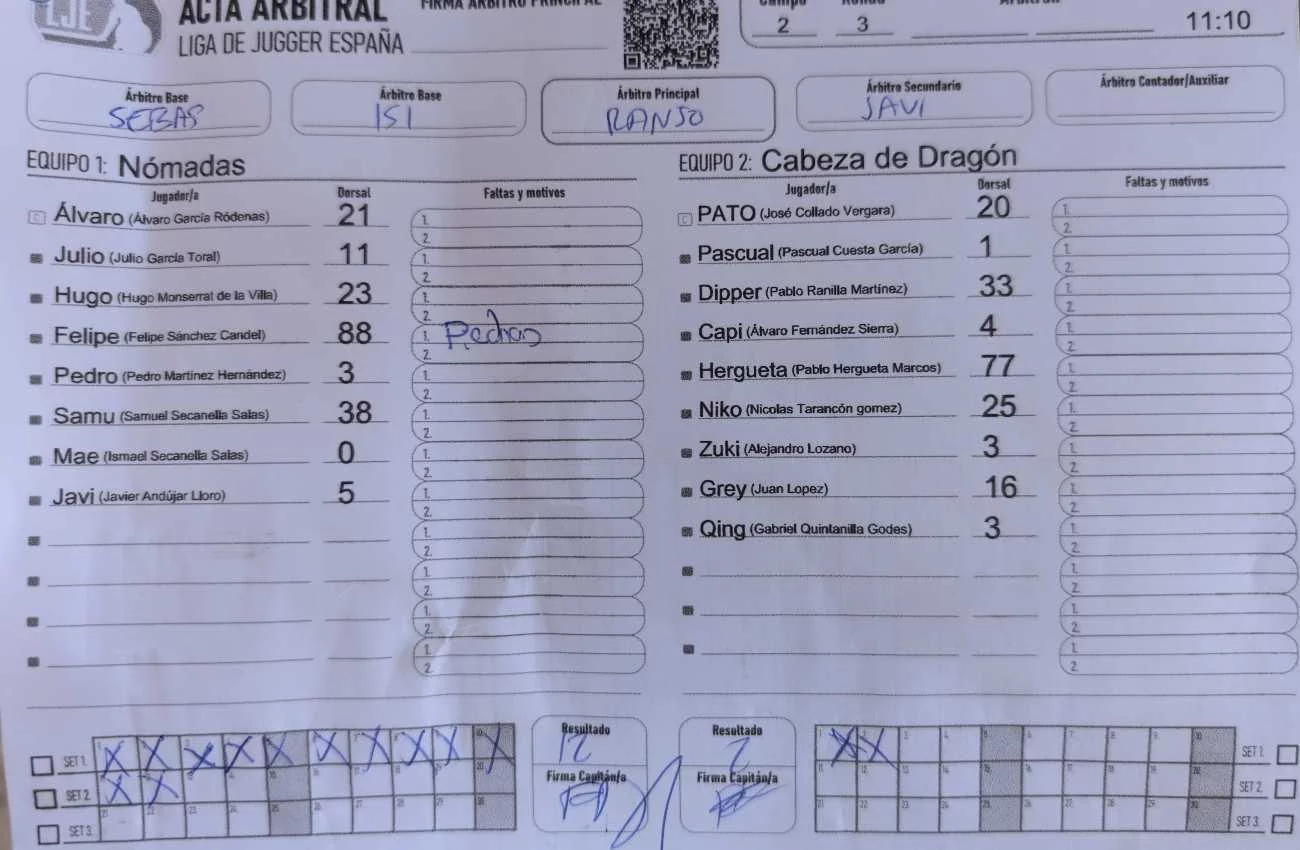 LJE
ACTA ARBITRAL
LIGA DE JUGGER ESPAÑA
FIRMA ÁRBITRO PRINCIPAL
2 3 11:10
Árbitro Base
SEBAS
Árbitro Base
ISI
Árbitro Principal
RANSO
Árbitro Secundario
JAVI
Árbitro Contador/Auxiliar
EQUIPO 1: Nómadas
Jugador/a Dorsal Faltas y motivos
C Álvaro (Álvaro García Ródenas) 21 1. 2.
Julio (Julio García Toral) 11 1. 2.
Hugo (Hugo Monserrat de la Villa) 23 1. 2.
Felipe (Felipe Sánchez Candel) 88 1. 2.
Pedro (Pedro Martínez Hernández) 3 1. 2.
Samu (Samuel Secanella Salas) 38 1. 2.
Mae (Ismael Secanella Salas) 0 1. 2.
Javi (Javier Andújar Lloro) 5 1. 2.
1. 2.
1. 2.
1. 2.
1. 2.
EQUIPO 2: Cabeza de Dragón
Jugador/a Dorsal Faltas y motivos
C PATO (José Collado Vergara) 20 1. 2.
Pascual (Pascual Cuesta García) 1 1. 2.
Dipper (Pablo Ranilla Martínez) 33 1. 2.
Capi (Álvaro Fernández Sierra) 4 1. 2.
Hergueta (Pablo Hergueta Marcos) 77 1. 2.
Niko (Nicolas Tarancón gomez) 25 1. 2.
Zuki (Alejandro Lozano) 3 1. 2.
Grey (Juan Lopez) 16 1. 2.
Qing (Gabriel Quintanilla Godes) 3 1. 2.
1. 2.
1. 2.
1. 2.
SET 1.
SET 2.
SET 3.
Resultado
12
Firma Capitán/a
Resultado
2
Firma Capitán/a
SET 1.
SET 2.
SET 3.